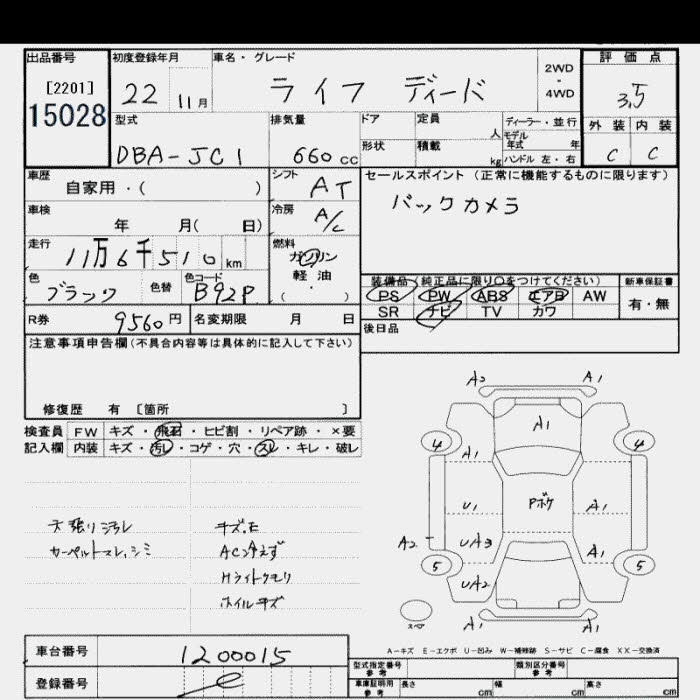 出品番号 初度登録年月 車名・グレード 2WD・4WD 評価点
[2201]
15028
22 11月 ライフ ディード 3.5
型式 排気量 ドア 定員 人 ディーラー・並行 外装 内装
モデル年式 年
DBA-JC1 660cc 形状 積載 kg ハンドル 左・右 C C
車歴 シフト セールスポイント (正常に機能するものに限ります)
自家用・( ) AT
車検 冷房 バックカメラ
年 月( 日) A/C
走行 燃料
11万6千510km ガソリン
軽油
( ・ )
色 色替 色コード 装備品 (純正品に限り○をつけてください) 新車保証書
ブラック B92P PS PW ABS エアB AW 有・無
SR ナビ TV カワ
R券 9560円 名変期限 月 日 後日品
注意事項申告欄(不具合内容等は具体的に記入して下さい)
修復歴 有 [箇所 ]
検査員 FW キズ・飛石・ヒビ割・リペア跡・×要
記入欄 内装 キズ・汚れ・コゲ・穴・スレ・キレ・破レ
A2 A1
A1
4 4
A1
U1 Pボケ A1
A2 UA3 A1
5 5
UA2
A1 A1
スペア
天張り汚レ キズ.E
カーペルトスレ.シミ AC冷えず
Hライトクモリ
ホイルキズ
A-キズ E-エクボ U-凹み W-補修跡 S-サビ C-腐食 XX-交換済
車台番号 1200015 型式指定番号 参考 類別区分番号 参考
登録番号 車庫証明用 参考 長さ cm 幅 cm 高さ cm